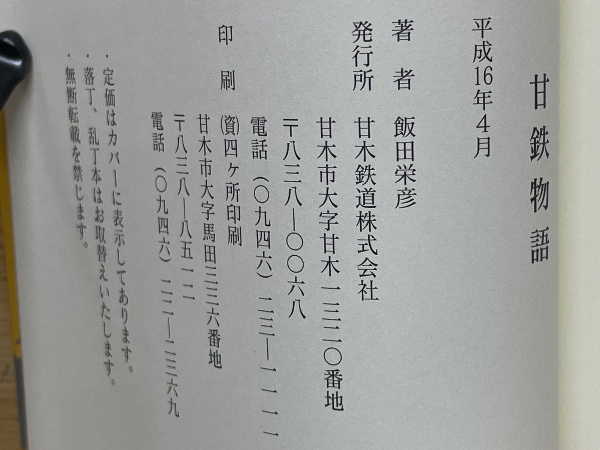 甘鉄物語
平成16年4月
著者 飯田栄彦
発行所 甘木鉄道株式会社
甘木市大字甘木一三二〇番地
〒八三八―〇〇六八
電話(〇九四六)二三―一一一一
印刷 ㈾四ヶ所印刷
甘木市大字馬田三三六番地
〒八三八―八五一二
電話(〇九四六)二二―二三六九
・定価はカバーに表示してあります。
・落丁、乱丁本はお取替えいたします。
・無断転載を禁じます。